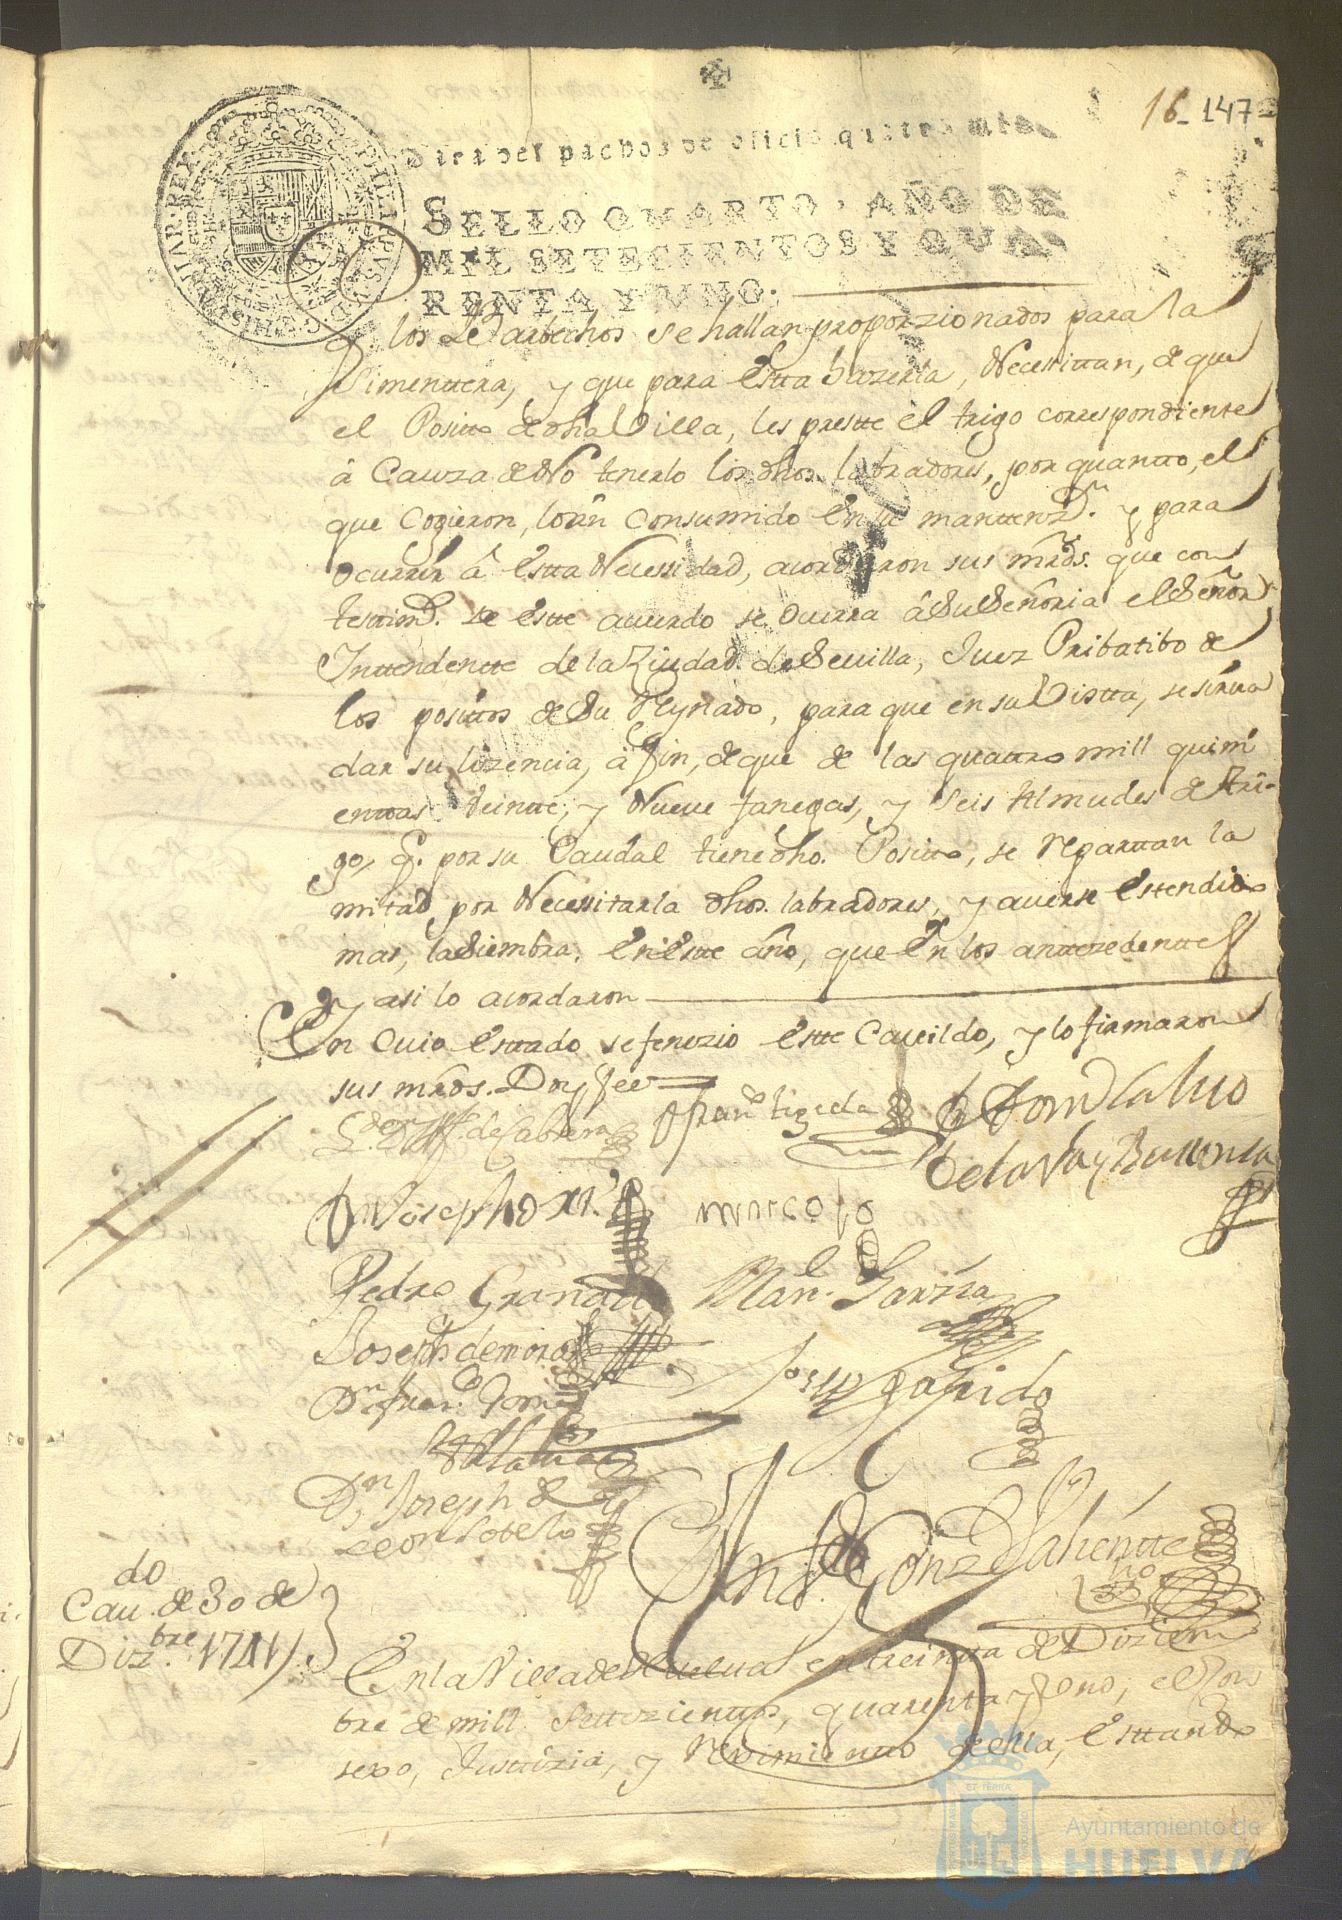 16 - 147
Para despachos de oficio quatro mrs.
SELLO QVARTO, AÑO DE
MIL SETECIENTOS Y QUA
RENTA Y UNO.
PHILIPPVS V D G HISPANIAR REX
q. los Barbechos se hallan proporzionados para la
Simenttera, y que para Estta hazerla, Necesittan, de que
el Positto de dha Villa, les prestte el trigo correspondiente
â Cauza de No tenerlo los dhos. labradores, por quantto, el
que Cogieron, lo an consumido En su mantenzn. y para
Ocurrir â Estta Necessidad, acordaron sus mrds. que con
testtimo. de Estte acuerdo se Ocurra â Su Señoria el Señor
Inttendentte de la Ziudad de Sevilla, Juez Pribatibo de
los posittos de Su Reynado, para que en su Vistta, se sirva
dar su lizencia, â fin, de que de las quattro mill quini
enttas Veintte, y Nueve fanegas, y Seis Almudes de tri-
go, q. por su Caudal tiene dho. Positto, se reparttan la
mitad por Necessitarla dhos. labradores, y averse Estendido
mas, la Siembra, En Estte año, que En los anttezedenttes
y asi lo acordaron
En Cuio Esttado se fenezio Estte Cavildo, y lo firmaron
sus mrds. Doy fee
de Cabrera
Fran.co tizeda
Dn Tom Calvo
de la Va y Bullonla
Dn Joseph
marcos
Pedro Grand
Man. Garzia
Joseph de mora
Joseph garrido
Dn Juan
Dn Joseph de
Leon Sotelo
Gonz Valientte
Cau.do de 30 de
Diz.bre 1741
En la Villa de Huelva en treinta de Diziem
bre de mill Settezienttos, quarenta y Uno, el Con
sexo, Justtizia, y Reximientto de Ella, Esttando
Ayuntamiento de
HUELVA